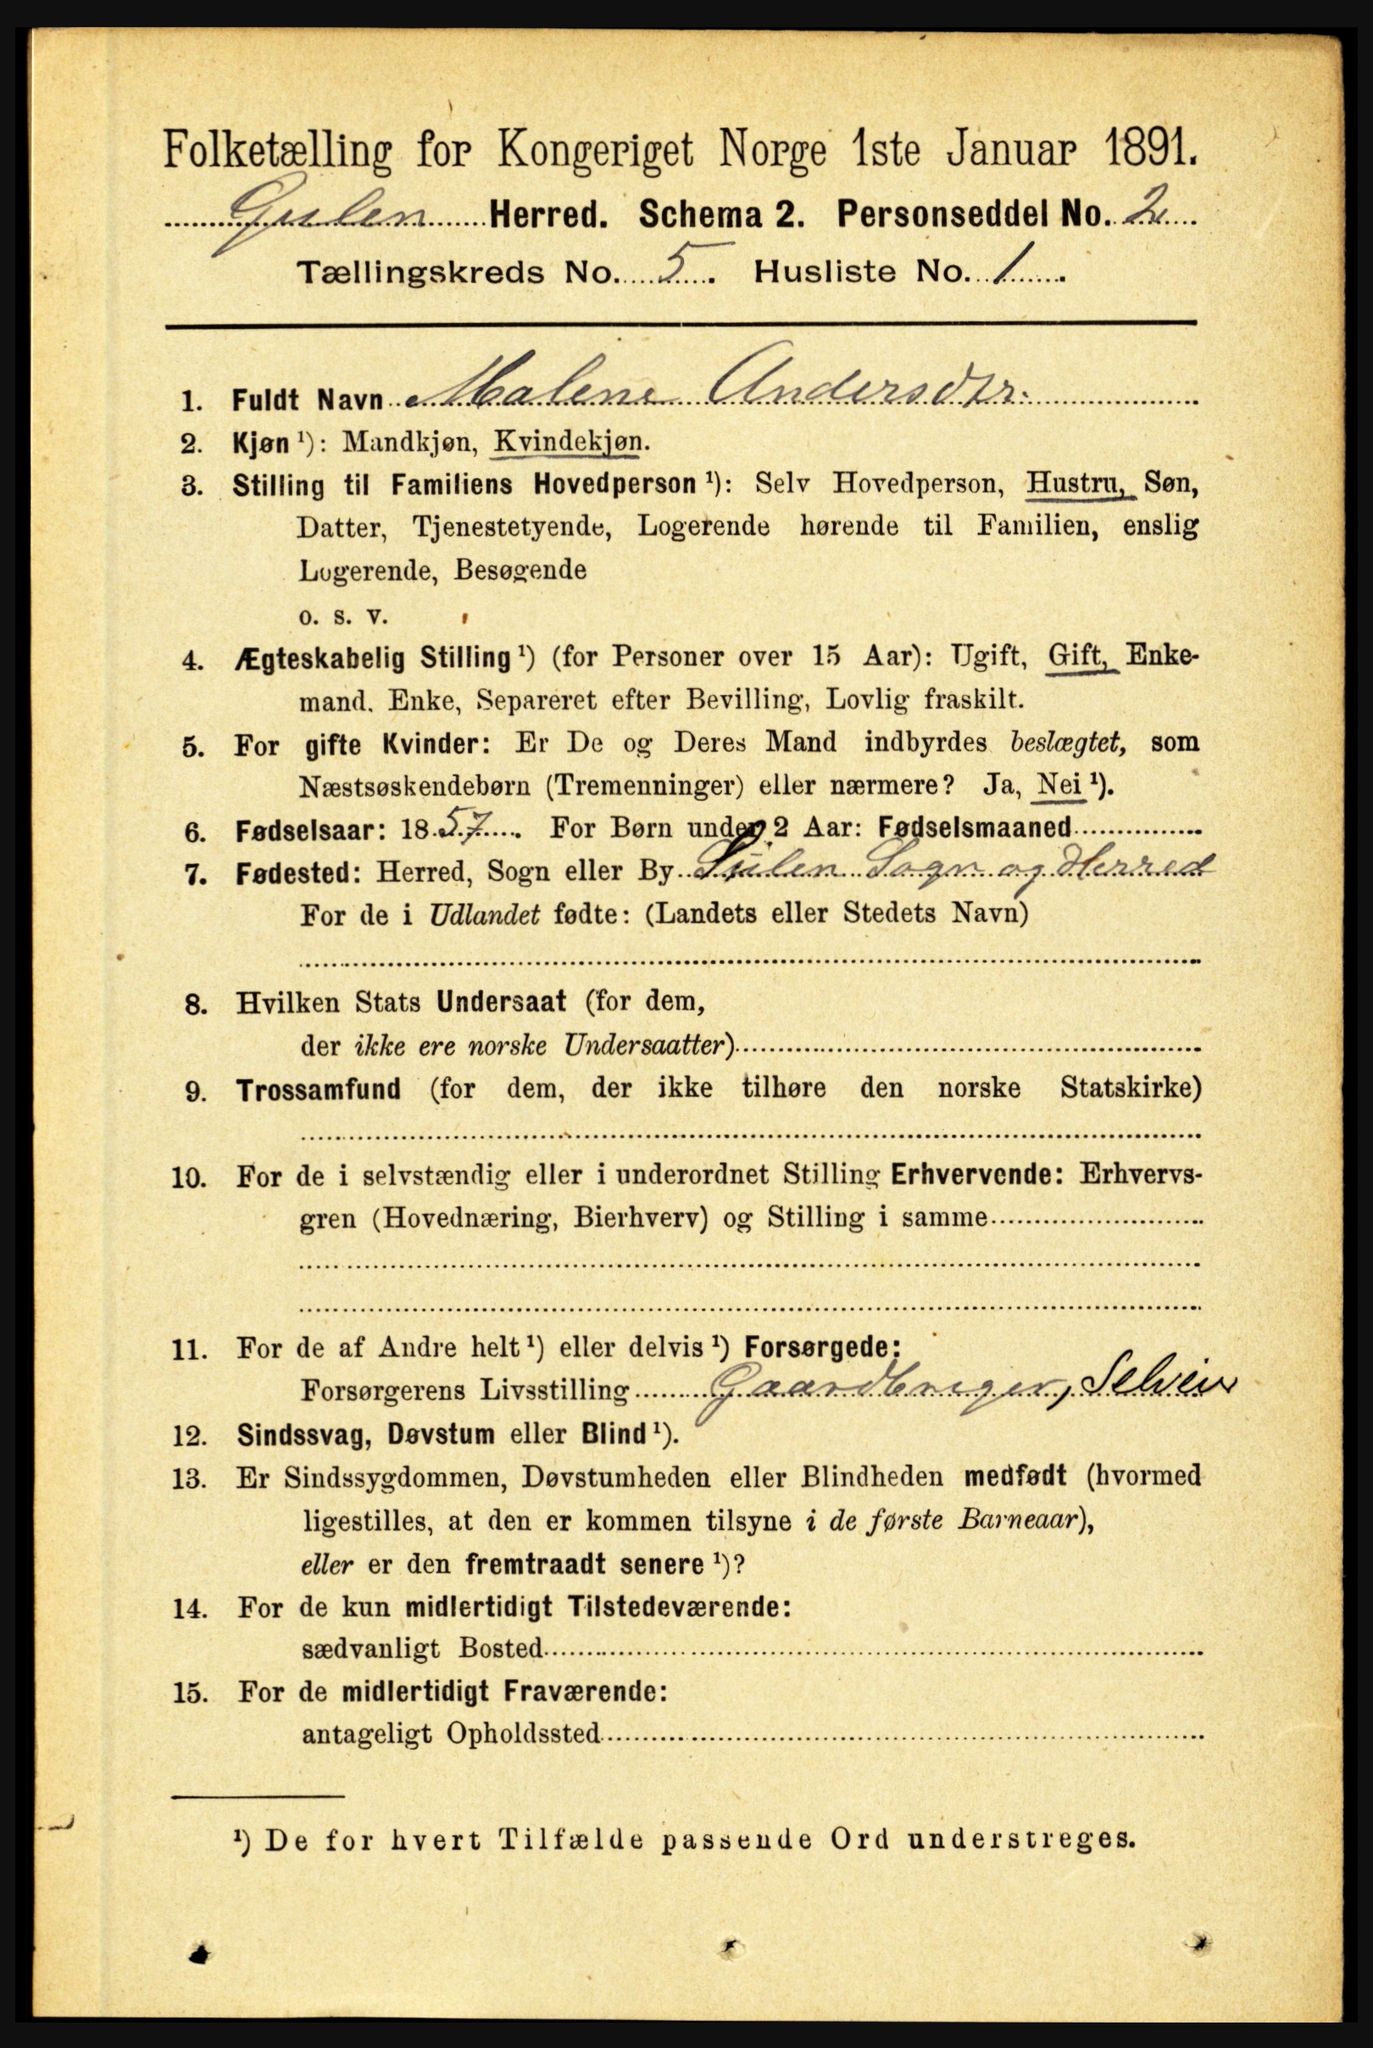 Folketælling for Kongeriget Norge 1ste Januar 1891.
Gulen Herred. Schema 2. Personseddel No. 2
Tællingskreds No. 5. Husliste No. 1
1. Fuldt Navn Malene Andersdtr.
2. Kjøn ¹): Mandkjøn, Kvindekjøn.
3. Stilling til Familiens Hovedperson ¹): Selv Hovedperson, Hustru, Søn,
Datter, Tjenestetyende, Logerende hørende til Familien, enslig
Logerende, Besøgende
o. s. v.
4. Ægteskabelig Stilling ¹) (for Personer over 15 Aar): Ugift, Gift, Enke-
mand, Enke, Separeret efter Bevilling, Lovlig fraskilt.
5. For gifte Kvinder: Er De og Deres Mand indbyrdes beslægtet, som
Næstsøskendebørn (Tremenninger) eller nærmere? Ja, Nei ¹).
6. Fødselsaar: 1857. For Børn under 2 Aar: Fødselsmaaned
7. Fødested: Herred, Sogn eller By Sulen Sogn og Herred
For de i Udlandet fødte: (Landets eller Stedets Navn)
8. Hvilken Stats Undersaat (for dem,
der ikke ere norske Undersaatter)
9. Trossamfund (for dem, der ikke tilhøre den norske Statskirke)
10. For de i selvstændig eller i underordnet Stilling Erhvervende: Erhvervs-
gren (Hovednæring, Bierhverv) og Stilling i samme
11. For de af Andre helt ¹) eller delvis ¹) Forsørgede:
Forsørgerens Livsstilling Gaardbruger, Selveier
12. Sindssvag, Døvstum eller Blind ¹).
13. Er Sindssygdommen, Døvstumheden eller Blindheden medfødt (hvormed
ligestilles, at den er kommen tilsyne i de første Barneaar),
eller er den fremtraadt senere ¹)?
14. For de kun midlertidigt Tilstedeværende:
sædvanligt Bosted
15. For de midlertidigt Fraværende:
antageligt Opholdssted
¹) De for hvert Tilfælde passende Ord understreges.